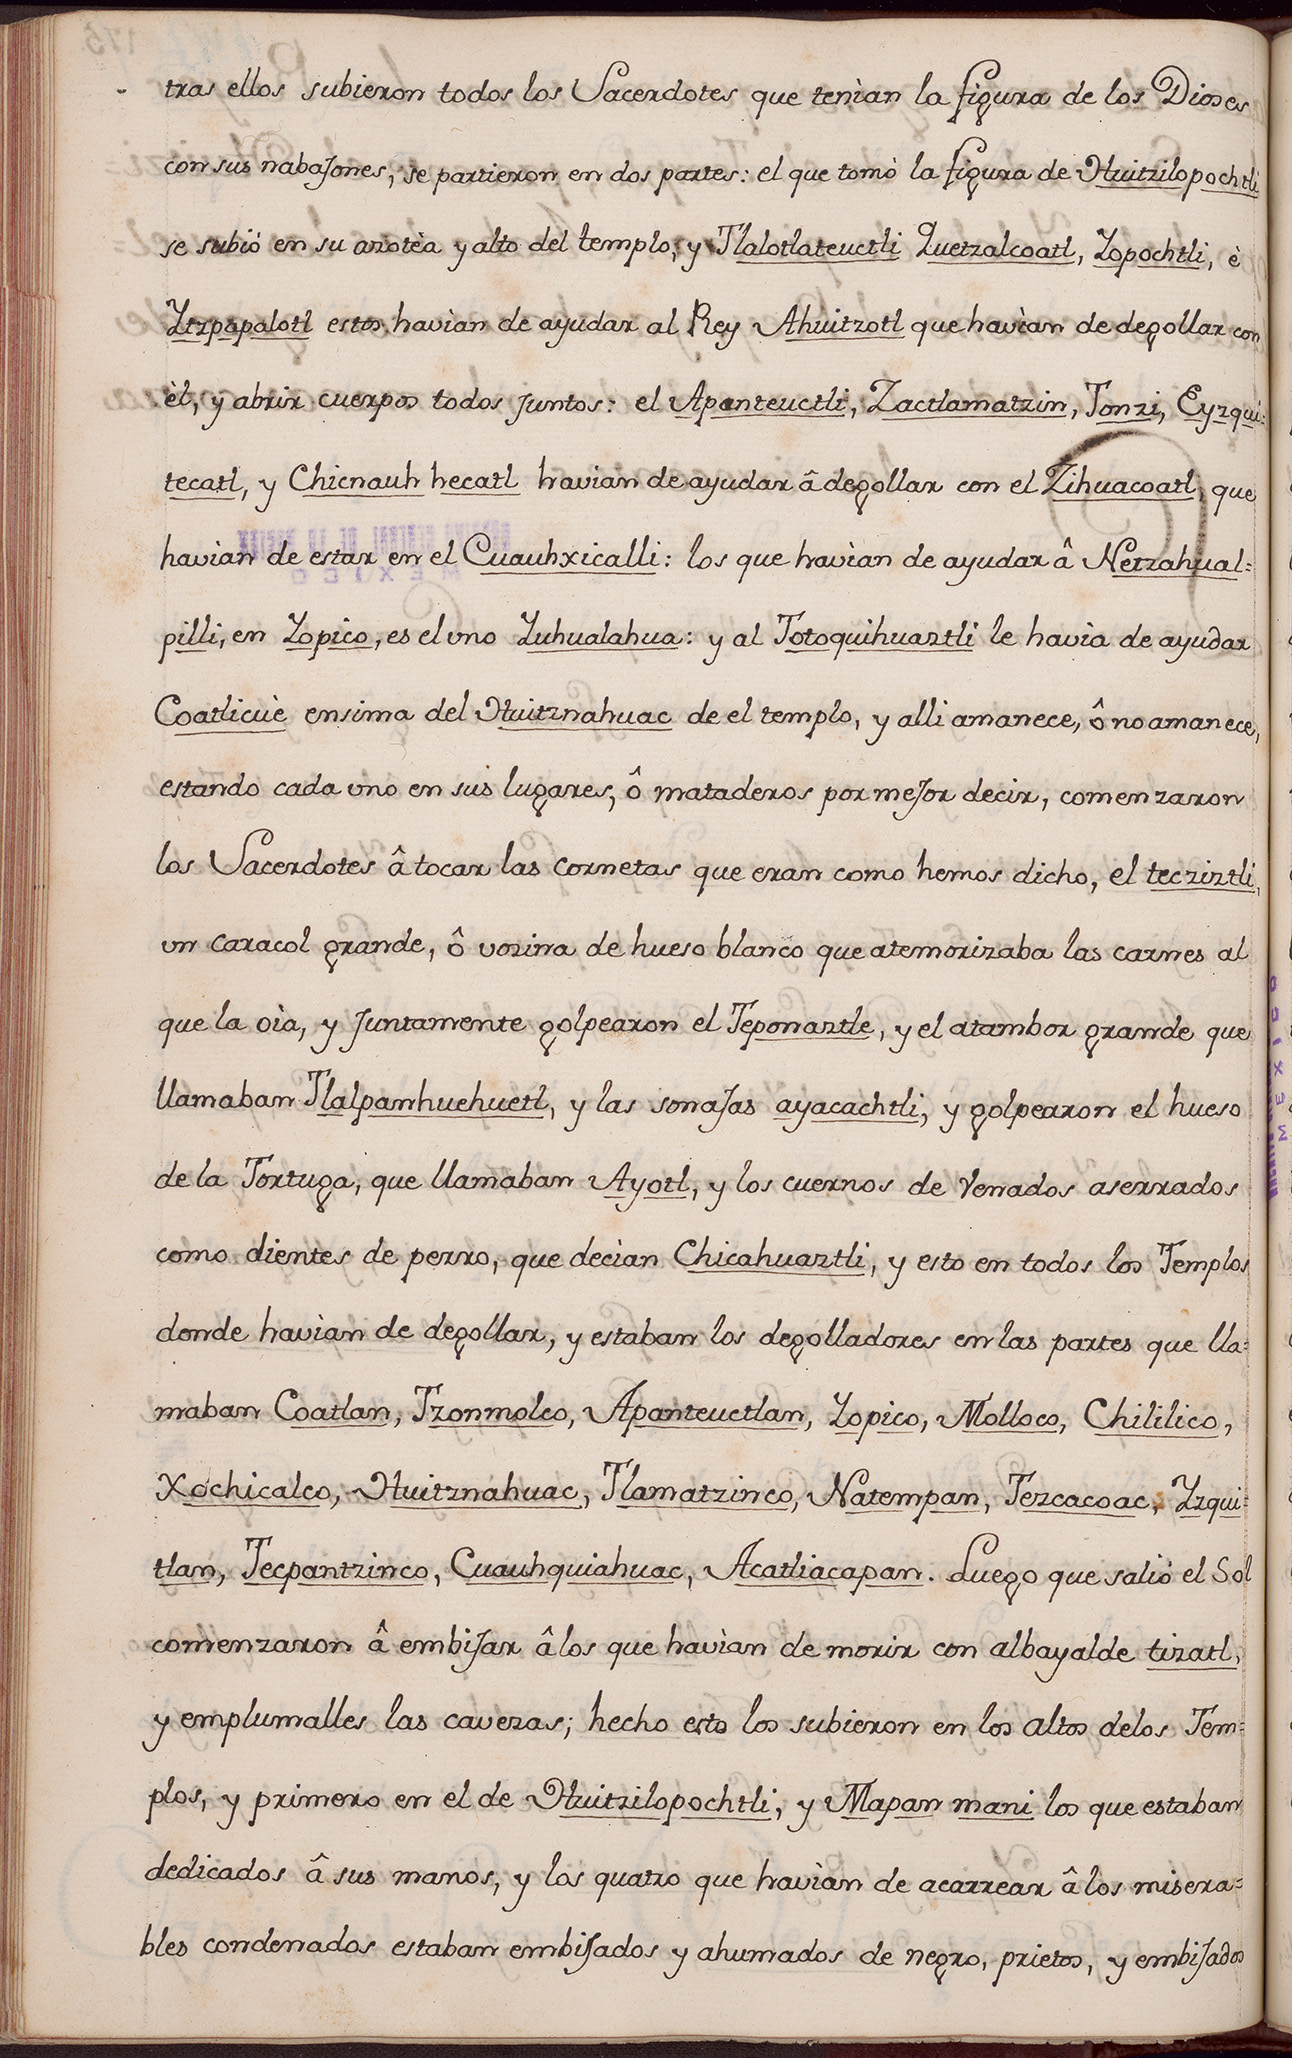 tras ellos subieron todos los Sacerdotes que tenìan la figura de los Dioses
con sus nabaJones, se partieron en dos partes: el que tomò la figura de Huitzilopochtli
se subió en su azotèa y alto del templo, y Tlalotlateuctli Quetzalcoatl, Yopochtli, è
Ytzpapalotl estos havìan de ayudar al Rey Ahuitzotl que havìan de degollar con
èl, y abrir cuerpos todos Juntos: el Apanteuctli, Zactlamatzin, Tonzi, Eyzqui=
tecatl, y Chicnauh hecatl havian de ayudar â degollar con el Zihuacoatl, que
havìan de estar en el Cuauhxicalli: los que havìan de ayudar â Netzahual=
pilli, en Yopico, es el vno Yuhualahua: y al Totoquihuaztli le havìa de ayudar
Coatlicuè ensima del Huitznahuac de el templo, y alli amanece, ô no amanece,
estando cada vno en sus lugares, ô mataderos por meJor decir, comenzaron
los Sacerdotes â tocar las cornetas que eran como hemos dicho, el tecziztli,
vn caracol grande, ô vozina de hueso blanco que atemorizaba las carnes al
que la oìa, y Juntamente golpearon el Teponaztle, y el atambor grande que
llamaban Tlalpanhuehuetl, y las sonaJas ayacachtli, y golpearon el hueso
de la Tortuga, que llamaban Ayotl, y los cuernos de Venados aserrados
como dientes de perro, que decìan Chicahuaztli, y esto en todos los Templos
donde havìan de degollar, y estaban los degolladores en las partes que lla=
maban Coatlan, Tzonmolco, Apanteuctlan, Yopico, Molloco, Chililico,
Xochicalco, Huitznahuac, Tlamatzinco, Natempan, Tezcacoac, Yzqui=
tlan, Tecpantzinco, Cuauhquiahuac, Acatliacapan. Luego que salió el Sol
comenzaron â embiJar â los que havìan de morir con albayalde tizatl,
y emplumalles las cavezas; hecho esto los subieron en los altos delos Tem=
plos, y primero en el de Huitzilopochtli, y Mapan mani los que estaban
dedicados â sus manos, y los quatro que havìan de acarrear â los misera=
bles condenados estaban embiJados y ahumados de negro, prietos, y embiJados